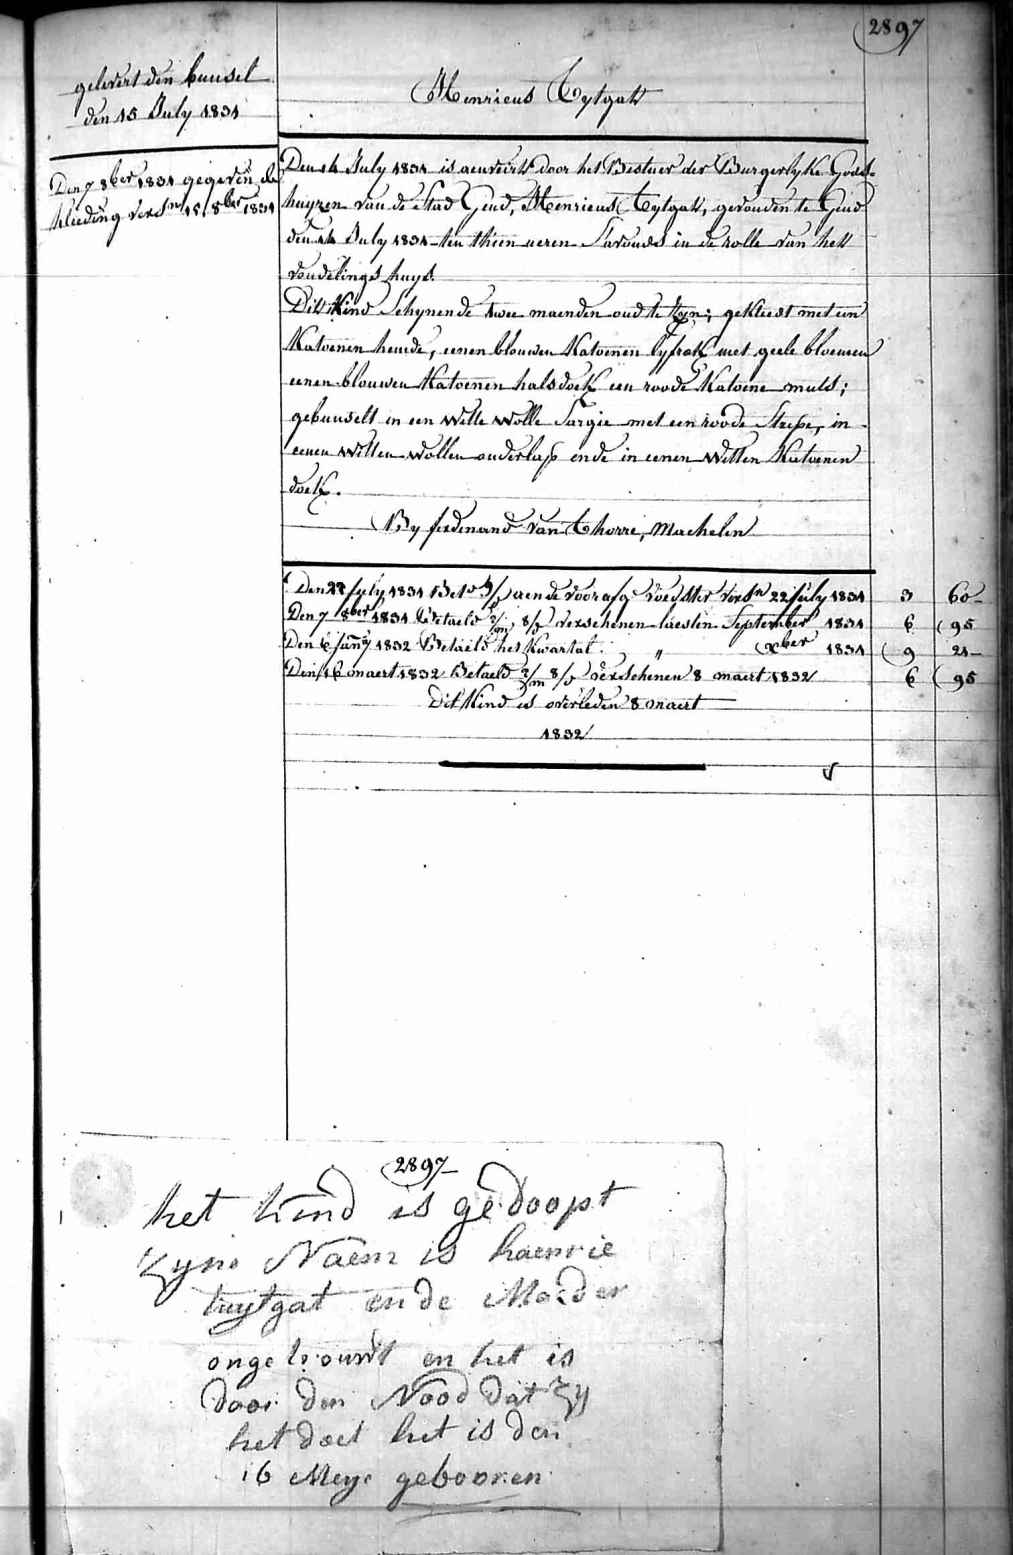 2897
gelevert den bunsel
den 15 July 1831
Henricus Tytgat
Den 7 8ber 1831 gegeven de
kleeding versn 15 8ber 1831
Den 14 July 1831 is aenveirt door het Bestuer der Burgerlyke Gods-
huyzen van de Stad Gend, Henricus Tytgat, gevonden te Gend
den 14 July 1831 ten thien ueren S'avonds in de rolle van het
vondelings huys.
Dit Kind Schynende twee maenden oud te zyn; gekleedt met een
Katoenen hemde, eenen blouwen Katoenen lyfrok met geele bloemen
eenen blouwen Katoenen halsdoek een roode Katoene muts;
gebunselt in een witte wolle Sargie met een roode Strepe, in
eenen witten wollen onderlap ende in eenen witten Katoenen
doek.
By ferdinand van Thorre, Machelen
Den 27 july 1831 Bet aen de voorafg voedster versn 22 july 1831 3 60
Den 7 8ber 1831 Betaeld 2/m 8/d verschenen laesten September 1831 6 95
Den 6 jany 1832 Betaeld het Kwartal " Xber 1831 9 21
Den 16 maert 1832 Betaeld 2/m 8/d verschenen 8 maert 1832 6 95
Dit Kind is overleden 8 maert
1832
2897
het kind is gedoopt
zyne Naem is haenrie
tuytgat en de Moeder
ongetrouwt en het is
door den Nood dat zy
het doet het is den
16 Meye gebooren